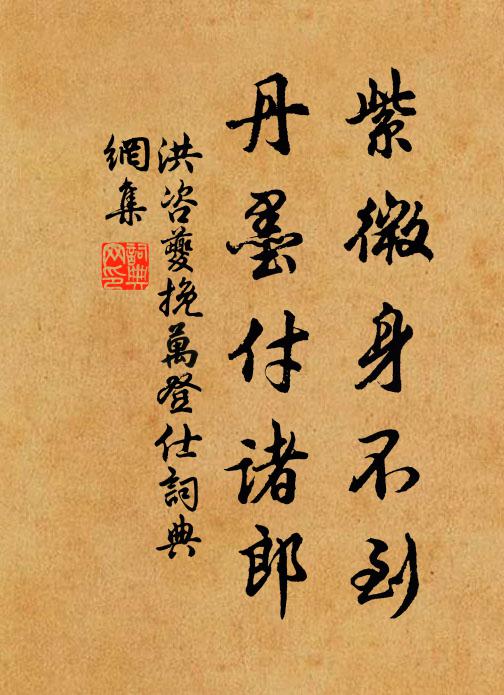 紫微身不到
丹墨付諸郎
洪咨夔挽萬登仕詞典
網集
詞典
网印